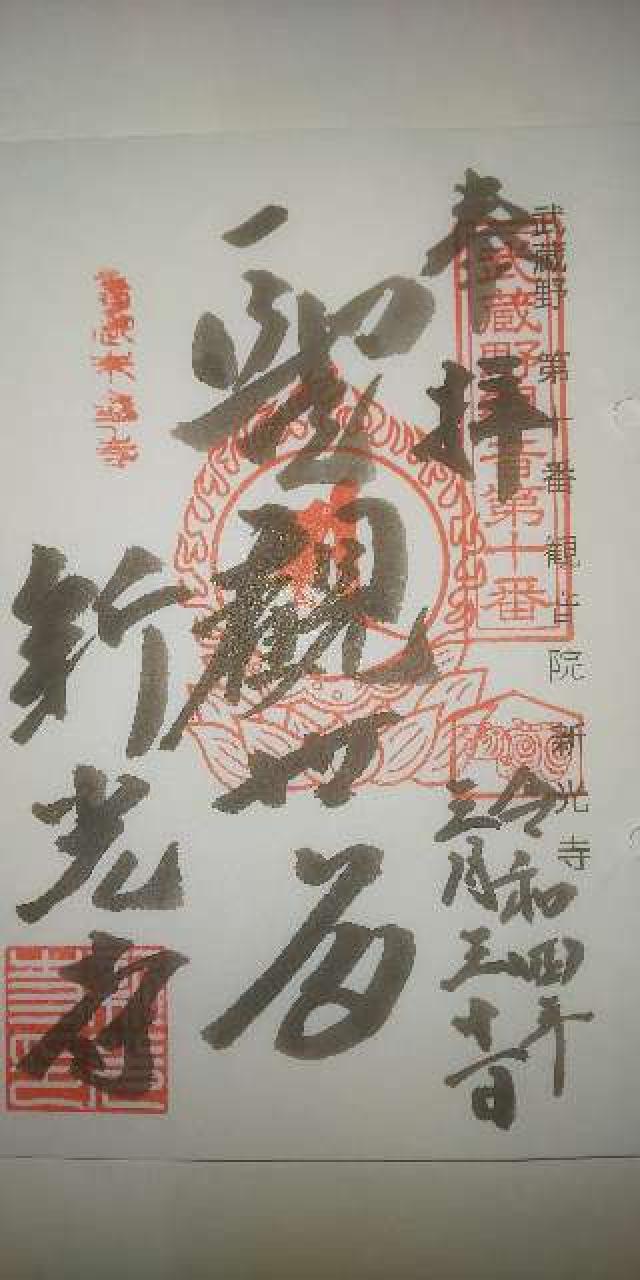 武蔵野 第十番 観音院 新光寺
武蔵野観音第十番
奉拝
令和四年
三月三十一日
聖観世音
新光寺